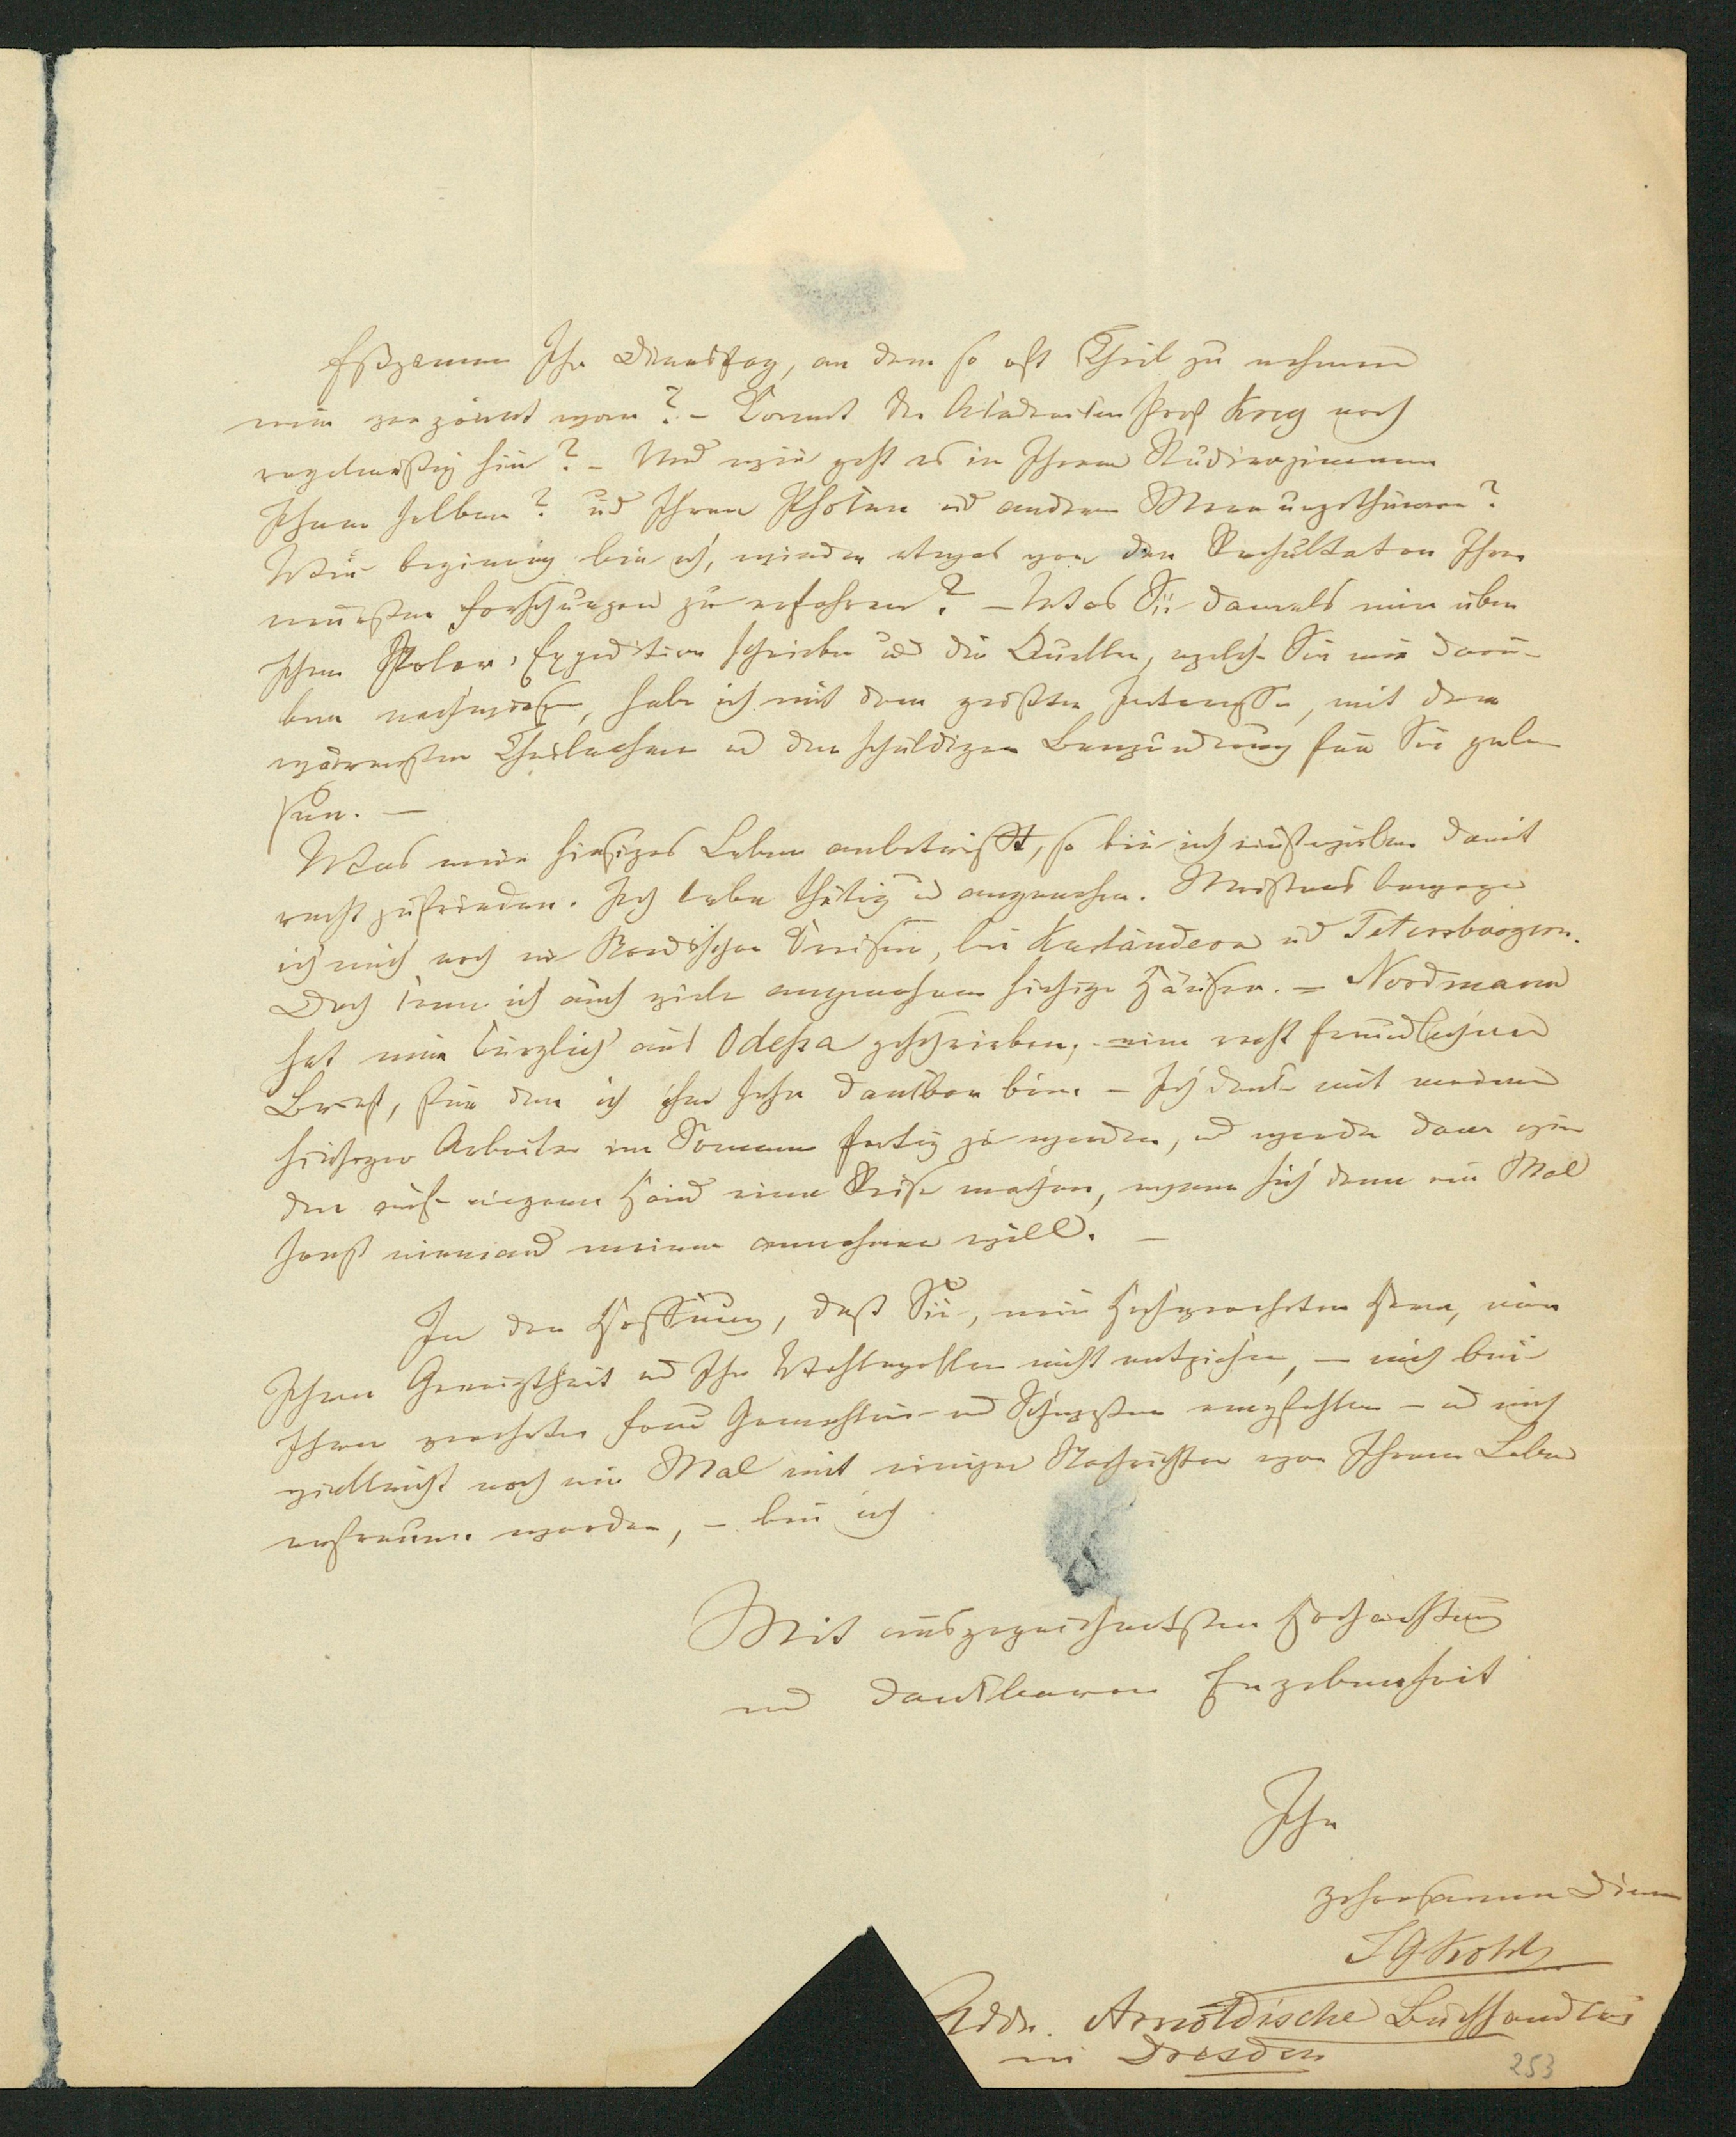 Ihr Dienstag, an dem so oft Theil zu nehmen
mir vergönnt war? – Kommt der Akademiker Prof Krug noch
regelmäßig hin? – Und wie geht es in Ihrem Studierzimmer
Ihnen selber? und Ihren Phoken und anderen Meerungethümen?
Wie begierig bin ich, wieder etwas von den Resultaten Ihrer
neuesten Forschungen zu erfahren? – Was Sie damals mir über
Ihre Polar-Expedition schrieben und die Quellen, welche Sie mir darü-
ber nachwiesen, habe ich mit dem größten Interesse, mit dem
wärmsten Theilnehmen und der schuldigen Bewunderung für Sie gele-
sen. –
Was mein hiesiges Leben anbetrifft, so bin ich einstweilen damit
recht zufrieden. Ich lebe thätig und angenehm. Meistens bewege
ich mich noch in Nordischen Kreisen, bei Kurländern und Petersburgern.
Doch kenne ich auch viele angenehme hiesige Häuser. – Nordmann
hat mir kürzlich aus Odessa geschrieben, einen recht freundlichen
Brief, für den ich ihm sehr dankbar bin. – Ich denke mit meinen
hiesigen Arbeiten im Sommer fertig zu werden, und werde dann wie
der auf eigene Hand eine Reise machen, wenn sich denn ein Mal
sonst niemand meiner annehmen will. –
In der Hoffnung, daß Sie, mein Hochgeehrter Herr, mir
Ihre Geneigtheit und Ihr Wohlwollen nicht entziehen, – mich bei
Ihrer geehrten Frau Gemahlin und Schwester empfehlen – und mich
vielleicht noch ein Mal mit einigen Nachrichten von Ihrem Leben
erfreuen werden, – bin ich
Mit ausgezeichnetster Hochachtung
und dankbarer Ergebenheit
Ihr
gehorsamer Diener
J G Kohl
Addr. Arnoldische Buchhandlung
in Dresden
253